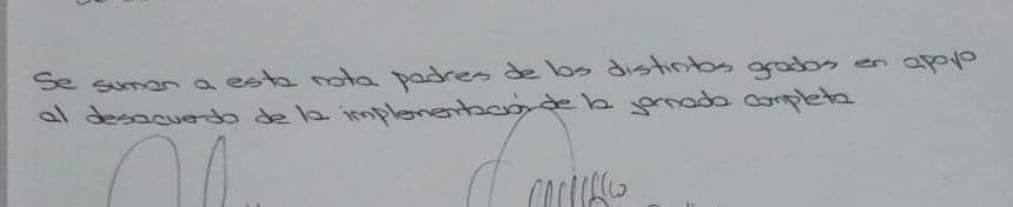 Se suman a esta nota padres de los distintos grados en apoyo
al desacuerdo de la implementación de la jornada completa